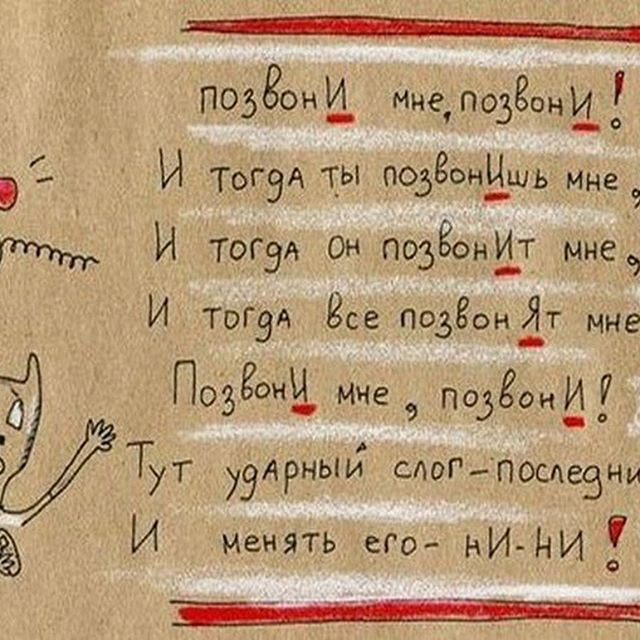 позвонИ мне, позвонИ!
И тогдА ты позвонИшь мне,
И тогдА он позвонИт мне,
И тогдА все позвонЯт мне
ПозвонИ мне, позвонИ!
Тут удАрный слог-последни
И менять его- нИ-нИ!